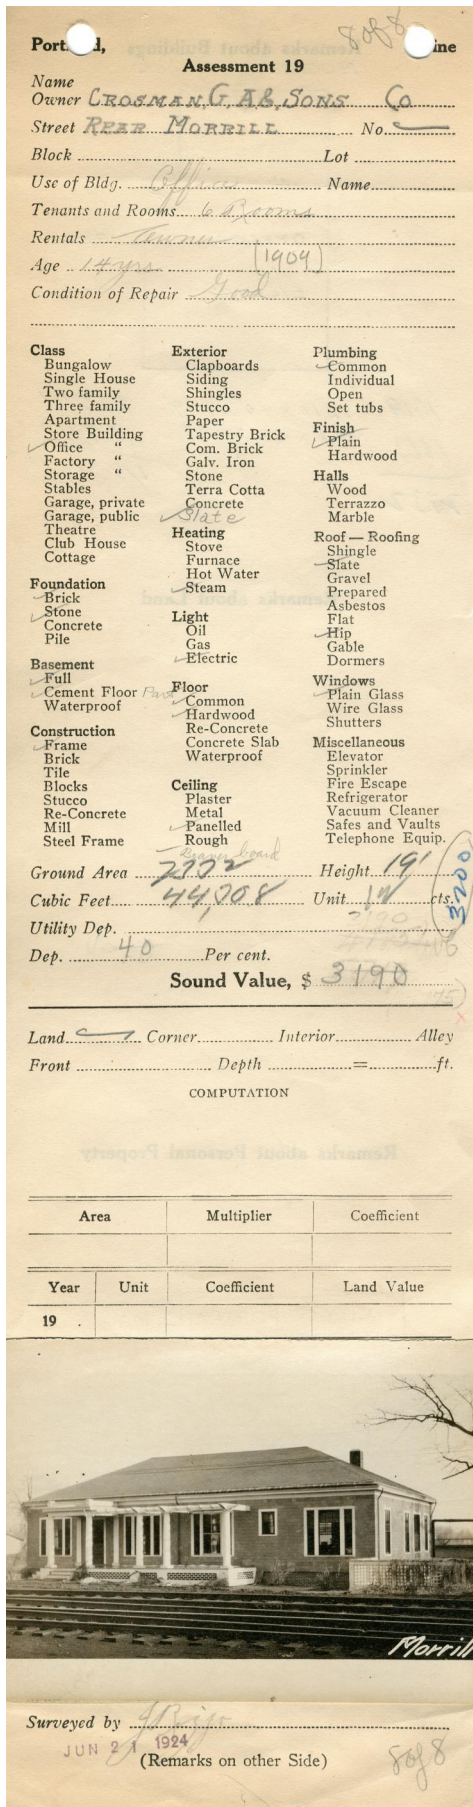 8 of 8
Portland, Maine
Assessment 19
Name
Owner CROSMAN, G. A. &, SONS Co
Street REAR MORRILL No.
Block Lot
Use of Bldg. Office Name
Tenants and Rooms 6 Rooms
Rentals Owner
Age 14 yrs. (1909)
Condition of Repair Good
Class
Bungalow
Single House
Two family
Three family
Apartment
Store Building
✓ Office "
Factory "
Storage "
Stables
Garage, private
Garage, public
Theatre
Club House
Cottage
Foundation
✓ Brick
✓ Stone
Concrete
Pile
Basement
✓ Full
✓ Cement Floor Part
Waterproof
Construction
✓ Frame
Brick
Tile
Blocks
Stucco
Re-Concrete
Mill
Steel Frame
Exterior
Clapboards
Siding
Shingles
Stucco
Paper
Tapestry Brick
Com. Brick
Galv. Iron
Stone
Terra Cotta
Concrete
✓ Slate
Heating
Stove
Furnace
Hot Water
✓ Steam
Light
Oil
Gas
✓ Electric
Floor
✓ Common
✓ Hardwood
Re-Concrete
Concrete Slab
Waterproof
Ceiling
Plaster
Metal
✓ Panelled
Rough
Beaver board
Plumbing
✓ Common
Individual
Open
Set tubs
Finish
✓ Plain
Hardwood
Halls
Wood
Terrazzo
Marble
Roof — Roofing
Shingle
✓ Slate
Gravel
Prepared
Asbestos
Flat
✓ Hip
Gable
Dormers
Windows
✓ Plain Glass
Wire Glass
Shutters
Miscellaneous
Elevator
Sprinkler
Fire Escape
Refrigerator
Vacuum Cleaner
Safes and Vaults
Telephone Equip.
Ground Area Height 19'
Cubic Feet Unit cts.
3200
Utility Dep.
Dep. 40 Per cent.
Sound Value, $ 3190
Land Corner Interior Alley
Front Depth = ft.
COMPUTATION
Area Multiplier Coefficient
Year Unit Coefficient Land Value
19
Morrill
Surveyed by
JUN 21 1924
(Remarks on other Side)
8 of 8